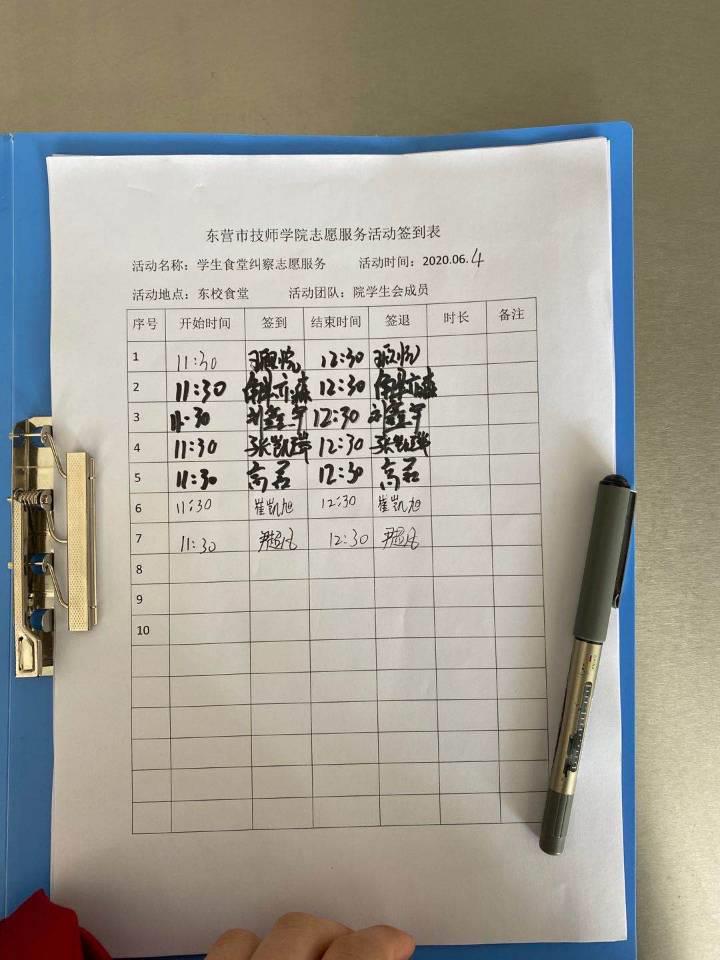 东营市技师学院志愿服务活动签到表
活动名称：学生食堂纠察志愿服务 活动时间：2020.06.4
活动地点：东校食堂 活动团队：院学生会成员
序号 开始时间 签到 结束时间 签退 时长 备注
1 11:30 12:30
2 11:30 12:30
3 11:30 刘鑫宇 12:30 刘鑫宇
4 11:30 张凯瑞 12:30 张凯瑞
5 11:30 高君 12:30 高君
6 11:30 崔凯旭 12:30 崔凯旭
7 11:30 12:30
8
9
10